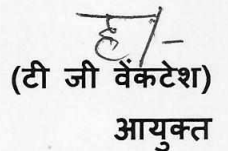 ह/-
(टी जी वेंकटेश)
आयुक्त